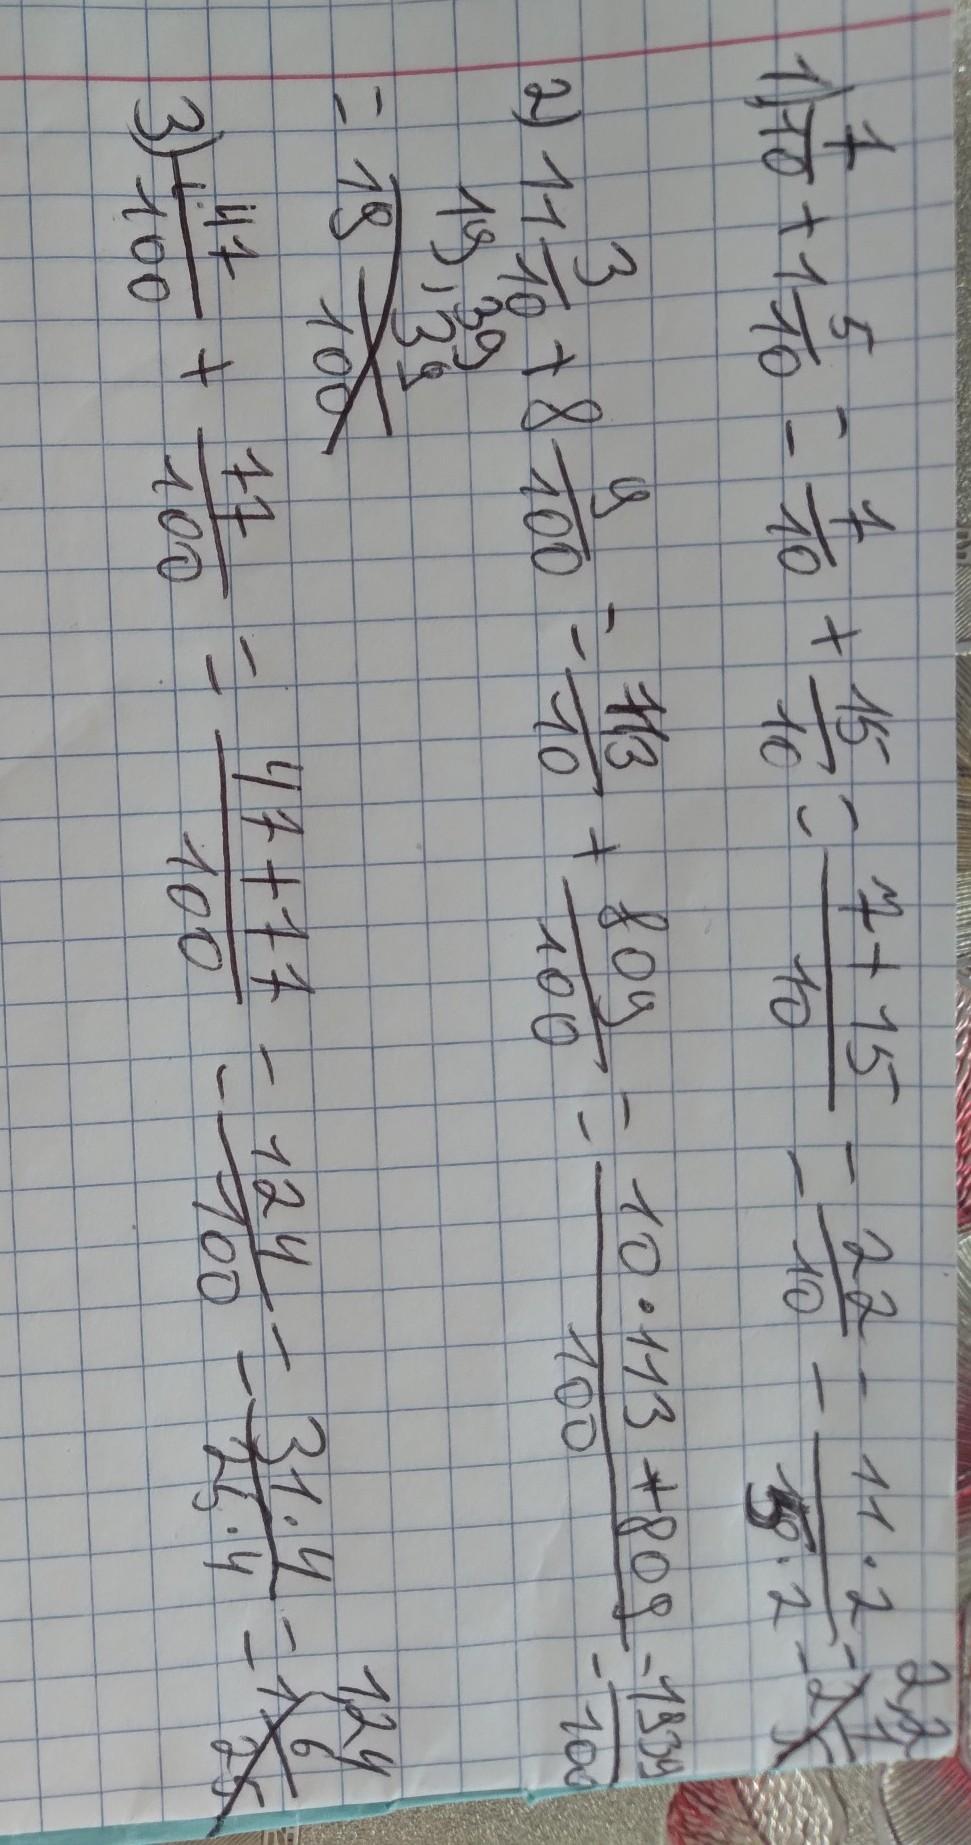 1) 7/10 + 1 5/10 = 7/10 + 15/10 = (7+15)/10 = 22/10 = (11·2)/(5·2) = 2 1/5 2,2
2) 11 3/10 + 8 9/100 = 113/10 + 809/100 = (10·113+809)/100 = 1939/100
= 19 39/100 19,39
3) 47/100 + 77/100 = (47+77)/100 = 124/100 = (31·4)/(25·4) = 1 6/25 1,24